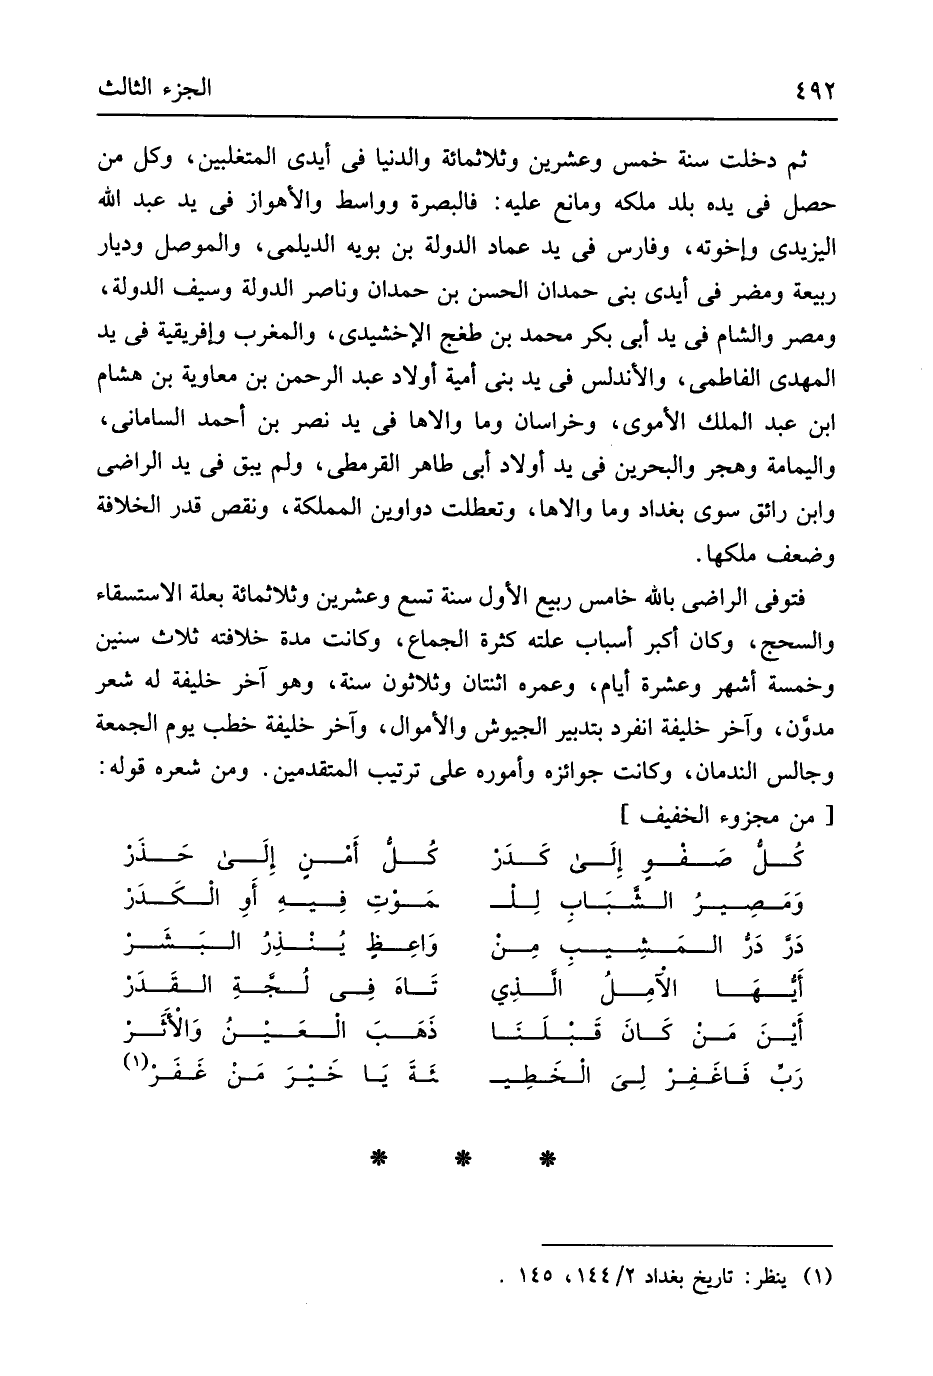 ٤٩٢ الجزء الثالث
ثم دخلت سنة خمس وعشرين وثلاثمائة والدنيا فى أيدى المتغلبين، وكل من
حصل فى يده بلد ملكه ومانع عليه: فالبصرة وواسط والأهواز فى يد عبد الله
اليزيدى وإخوته، وفارس فى يد عماد الدولة بن بويه الديلمى، والموصل وديار
ربيعة ومضر فى أيدى بنى حمدان الحسن بن حمدان وناصر الدولة وسيف الدولة،
ومصر والشام فى يد أبى بكر محمد بن طغج الإخشيدى، والمغرب وإفريقية فى يد
المهدى الفاطمى، والأندلس فى يد بنى أمية أولاد عبد الرحمن بن معاوية بن هشام
ابن عبد الملك الأموى، وخراسان وما والاها فى يد نصر بن أحمد السامانى،
واليمامة وهجر والبحرين فى يد أولاد أبى طاهر القرمطى، ولم يبق فى يد الراضى
وابن رائق سوى بغداد وما والاها، وتعطلت دواوين المملكة، ونقص قدر الخلافة
وضعف ملكها.
فتوفى الراضى بالله خامس ربيع الأول سنة تسع وعشرين وثلاثمائة بعلة الاستسقاء
والسحج، وكان أكبر أسباب علته كثرة الجماع، وكانت مدة خلافته ثلاث سنين
وخمسة أشهر وعشرة أيام، وعمره اثنتان وثلاثون سنة، وهو آخر خليفة له شعر
مدوَّن، وآخر خليفة انفرد بتدبير الجيوش والأموال، وآخر خليفة خطب يوم الجمعة
وجالس الندمان، وكانت جوائزه وأموره على ترتيب المتقدمين. ومن شعره قوله:
[ من مجزوء الخفيف ]
كُلُّ صَفْوٍ إِلَىٰ كَدَرْ كُلُّ أَمْنٍ إِلَىٰ حَذَرْ
وَمَصِيرُ الشَّبَابِ لِلْـ ـمَوْتِ فِيهِ أَوِ الْكَدَرْ
دَرَّ دَرُّ الْمَشِيبِ مِنْ وَاعِظٍ يُنْذِرُ الْبَشَرْ
أَيُّهَا الْآمِلُ الَّذِي تَاهَ فِى لُجَّةِ الْقَدَرْ
أَيْنَ مَنْ كَانَ قَبْلَنَا ذَهَبَ الْعَيْنُ وَالْأَثَرْ
رَبِّ فَاغْفِرْ لِىَ الْخَطِيـ ـئَةَ يَا خَيْرَ مَنْ غَفَرْ(١)
* * *
(١) ينظر: تاريخ بغداد ١٤٤/٢، ١٤٥ .